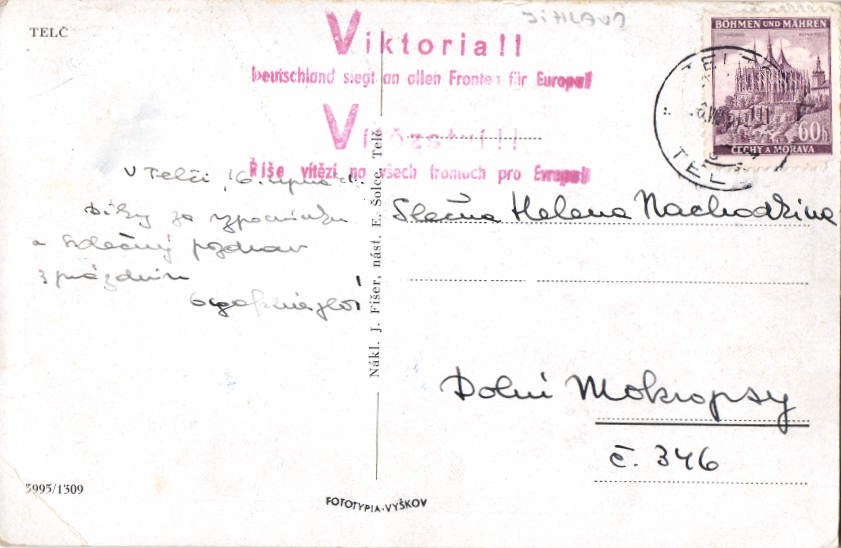 TELČ
JIHLAVA
Viktoria!!
Deutschland siegt an allen Fronten für Europa!!
Vítězství!!
Říše vítězí na všech frontach pro Evropu!!
BÖHMEN UND MÄHREN
60h
ČECHY A MORAVA
TELČ
V Telči 16. srpna
Díky za vzpomínku
a srdečný pozdrav
z prázdnin
Slečna Helena Nachodzina
Dolní Mokropsy
č. 346
Nákl. J. Fišer, nást. E. Šolce, Telč
5995/1309
FOTOTYPIA-VYŠKOV